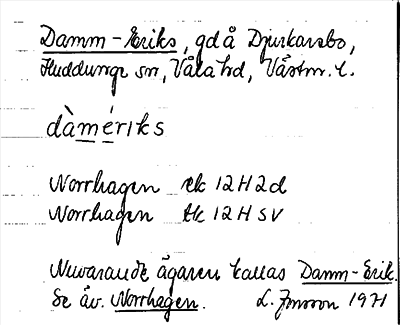 Damm-Eriks, gd å Djurkarsbo,
Huddunge sn, Våla hd, Västm. l.
dàmériks
Norrhagen ek 12H2d
Norrhagen tk 12H SV
Nuvarande ägaren kallas Damm-Erik.
Se äv. Norrhagen. L. Jonsson 1971